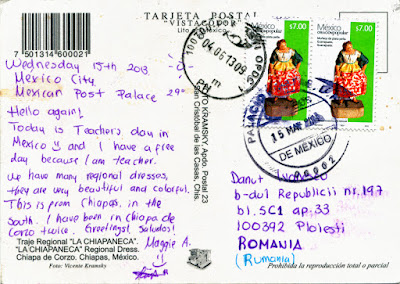 TARJETA POSTAL
"VISTACOLOR"
7 501314 600021
México
$7.00
México
$7.00
04 06 13 09
PM
3090
15 MAY
DE MEXICO
Wednesday 15th 2013
Mexico City
Mexican Post Palace 29°
Hello again!
Today is Teachers day in
Mexico and I have a free
day because I am teacher.
We have many regional dresses,
they are very beautiful and colorful.
This is from Chiapas, in the
South. I have been in Chiapa de
Corzo twice. Greetings! Saludos!
Maggie A.
KRAMSKY, Apdo. Postal 23
San Cristóbal de las Casas, Chis.
Danut
b-dul Republicii nr. 197
bl. SC1 ap. 33
100392 Ploiesti
ROMANIA
(Rumania)
Traje Regional "LA CHIAPANECA".
"LA CHIAPANECA" Regional Dress.
Chiapa de Corzo, Chiapas, México.
Foto: Vicente Kramsky
Prohibida la reproducción total o parcial